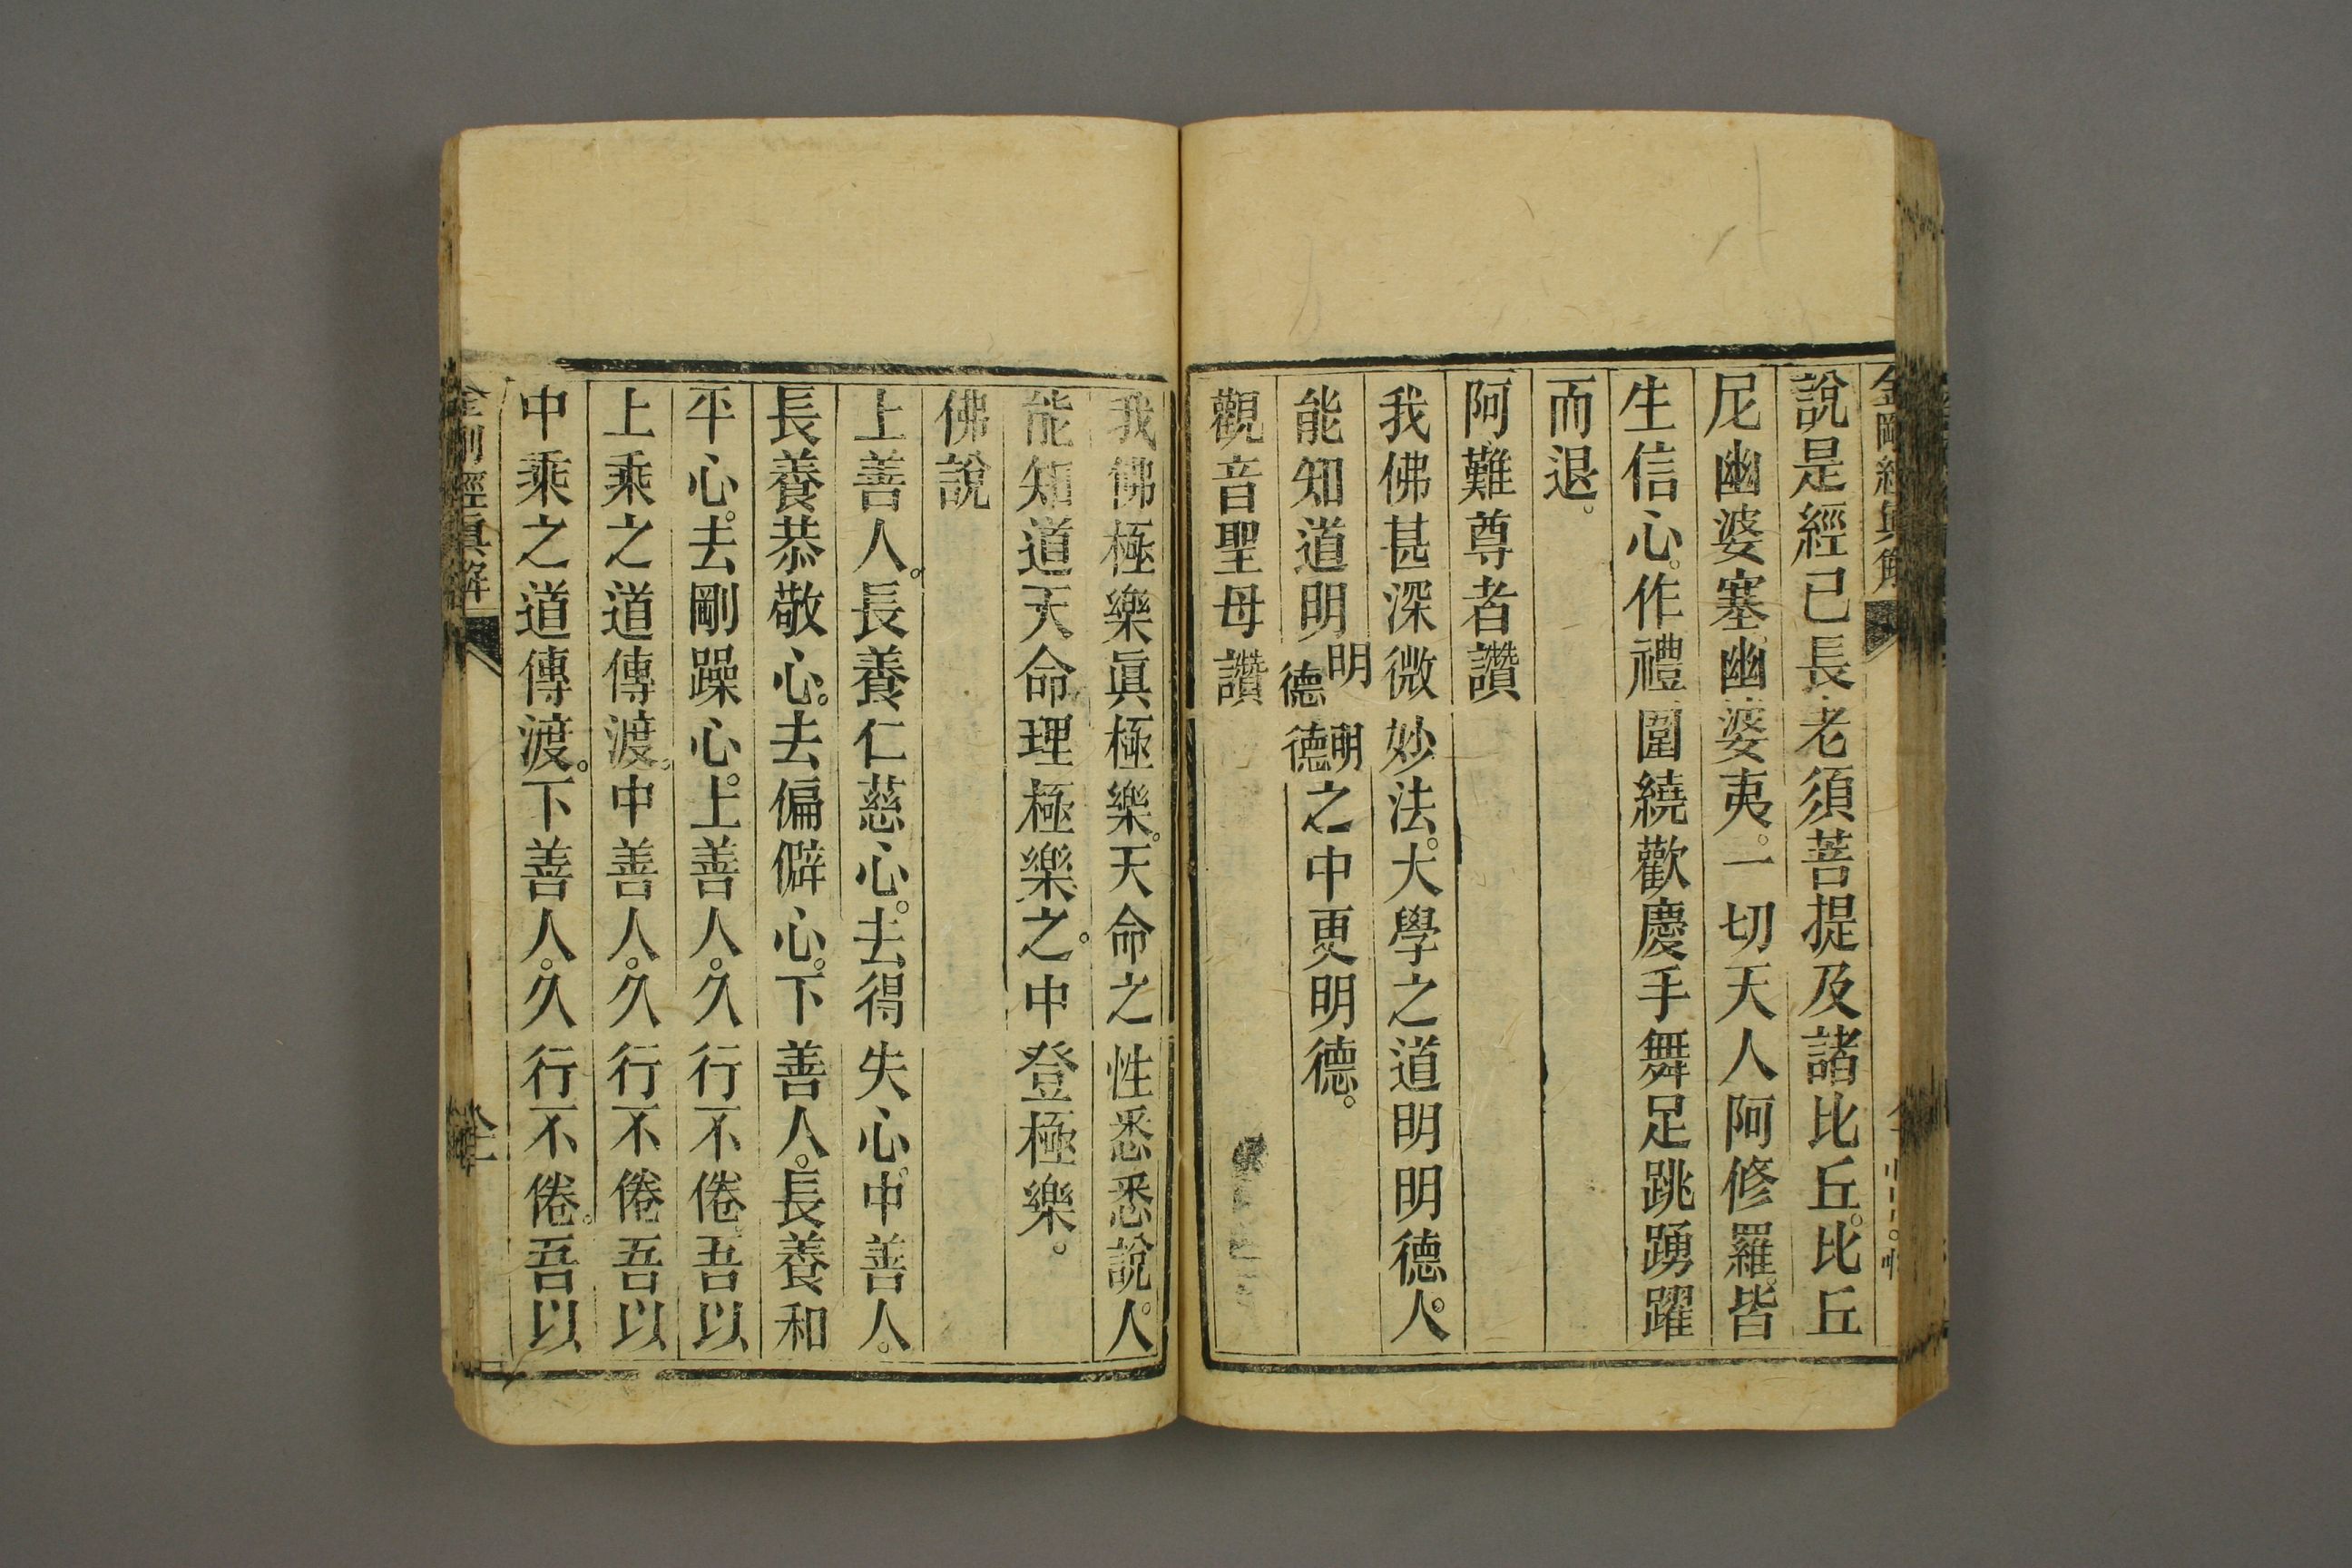 金剛經眞解
說是經已長老須菩提及諸比丘。比丘
尼幽婆塞幽婆夷。一切天人阿修羅。皆
生信心。作禮圍繞歡慶手舞足跳踴躍
而退。
阿難尊者讚
我佛甚深微妙法。大學之道明明德。人
能知道明明德明德之中更明德。
觀音聖母讚
我佛極樂眞極樂。天命之性悉悉說。人
能知道天命理極樂之。中登極樂。
佛說
上善人。長養仁慈心。去得失心。中善人。
長養恭敬心。去偏僻心。下善人。長養和
平心。去剛躁心。上善人。久行不倦。吾以
上乘之道傳渡。中善人。久行不倦吾以
中乘之道傳渡。下善人。久行不倦。吾以
金剛經眞解